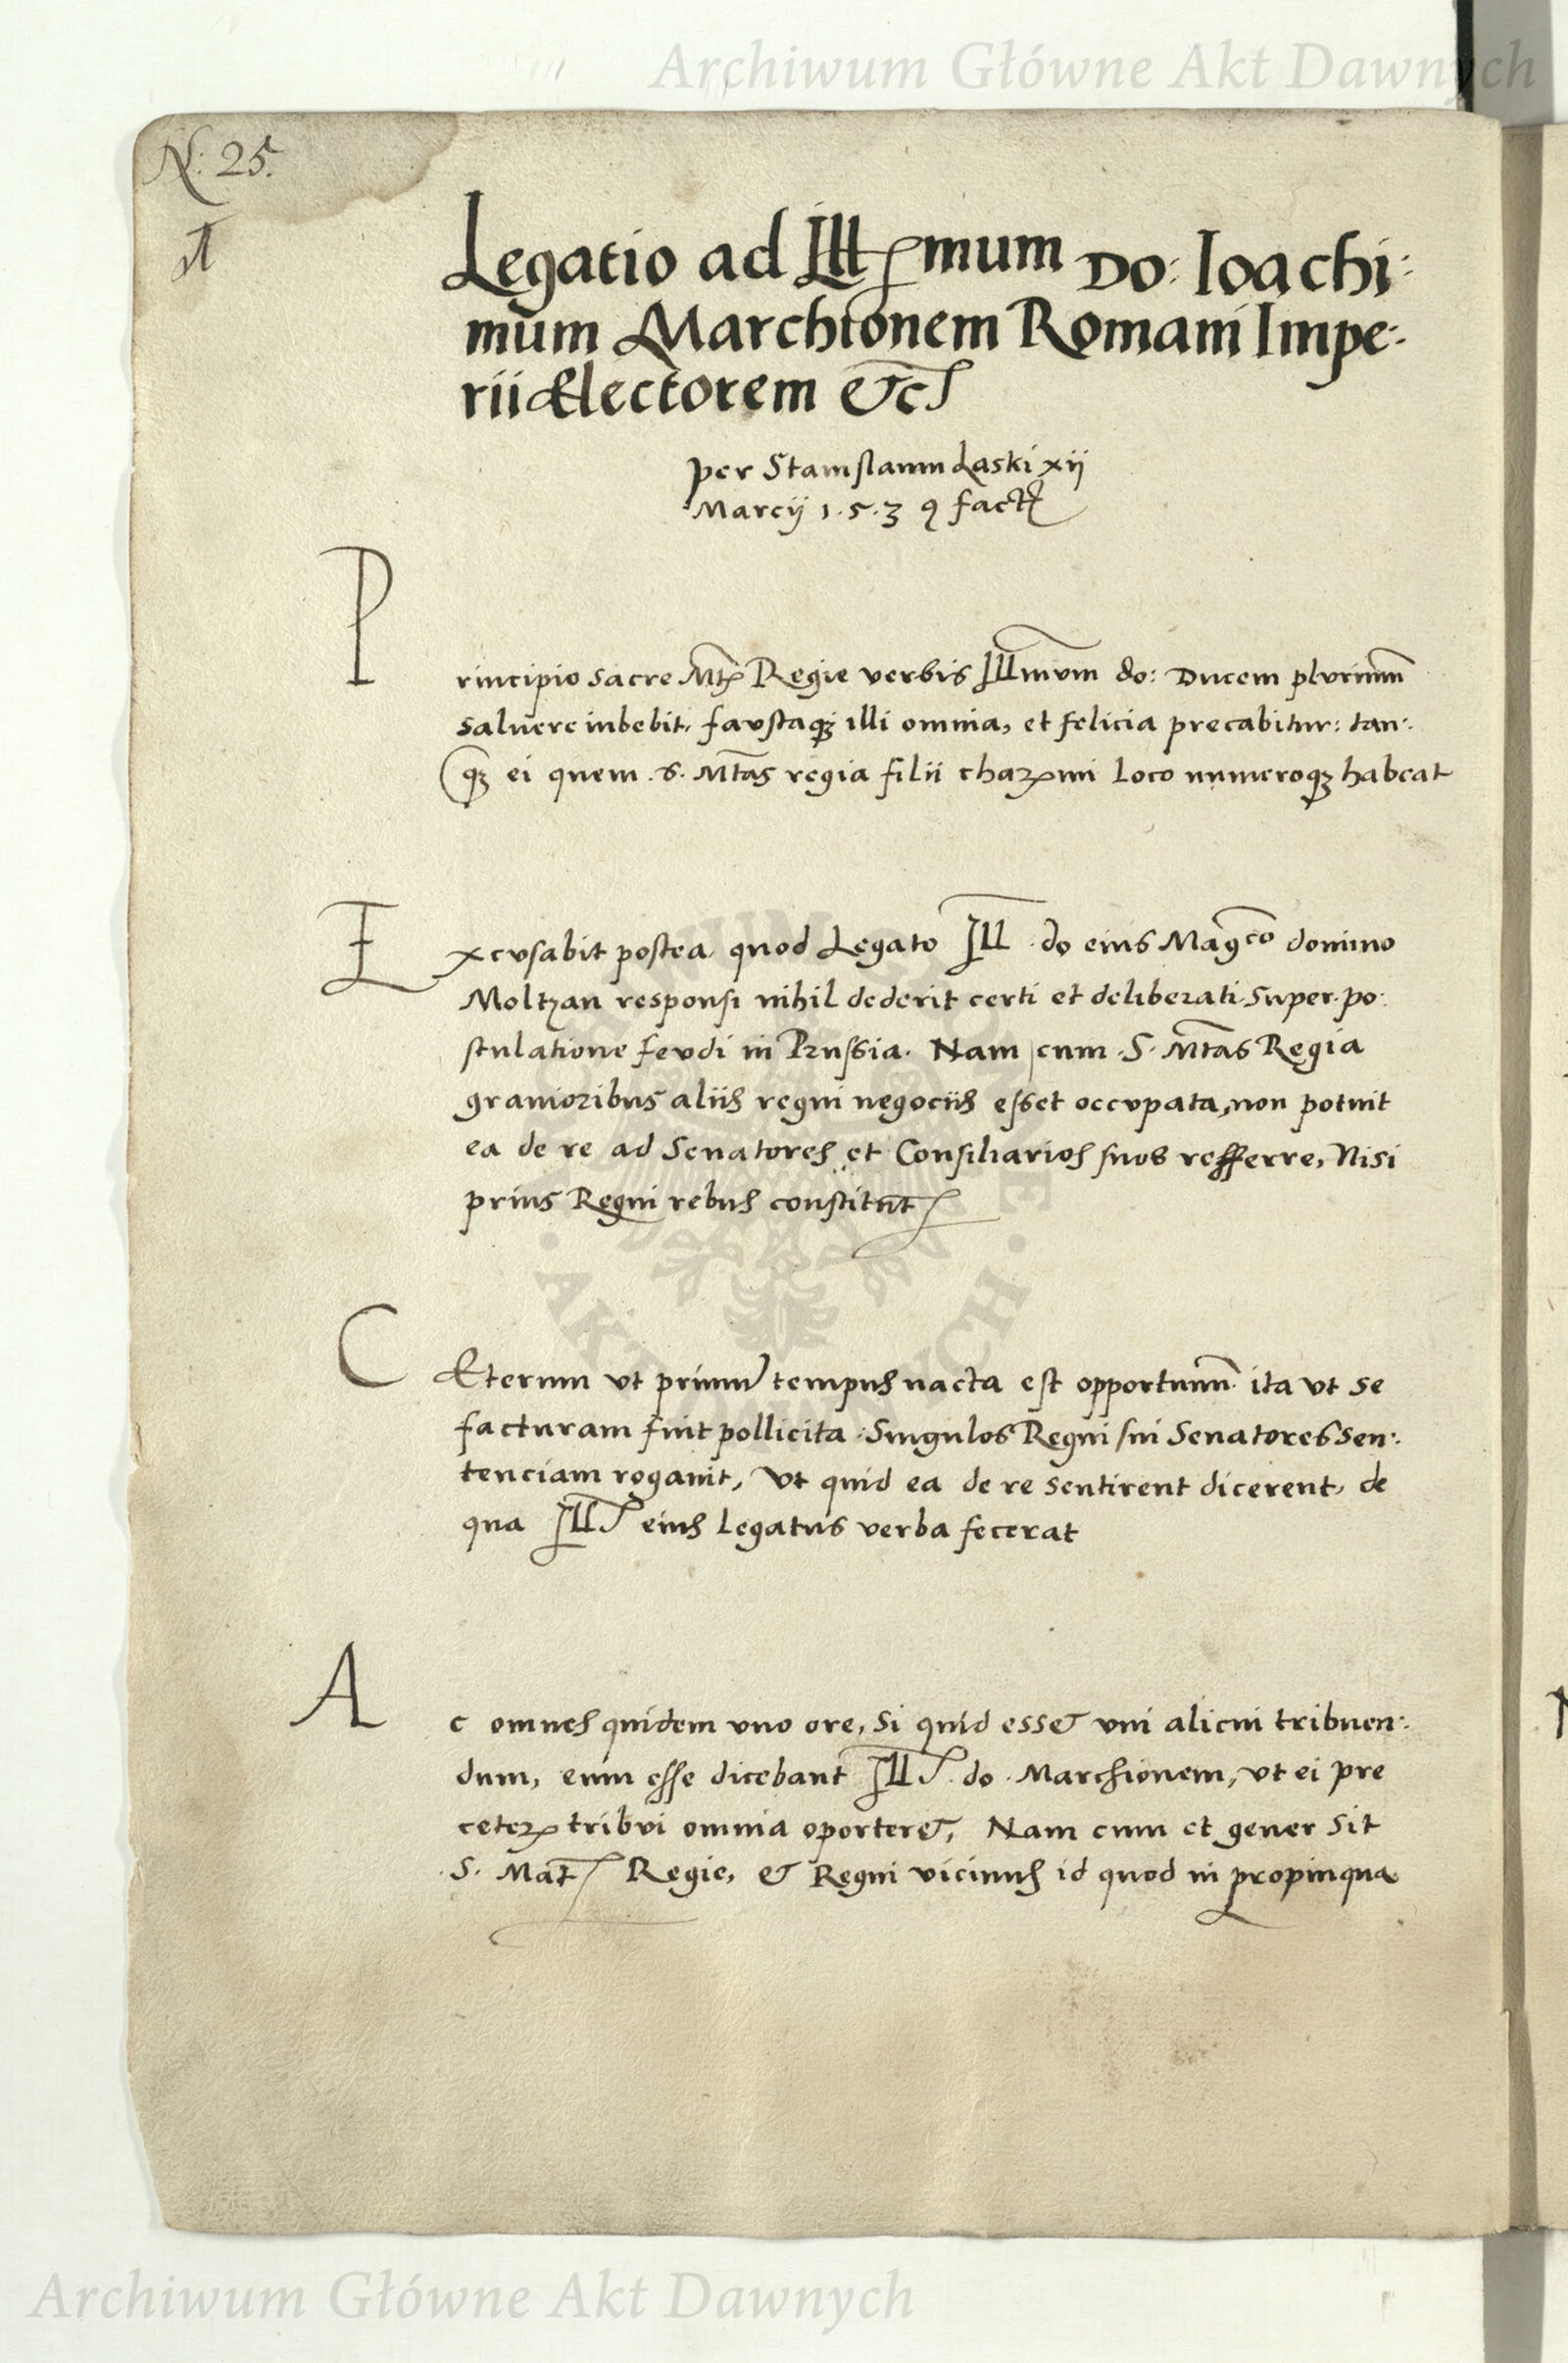 Archiwum Główne Akt Dawnych
N: 25.
Legatio ad Illmum Do: Ioachi:
mum Marchionem Romani Impe:
rii Electorem &c
per Stanislaum Laski xii
Marcij 1.5.3 9 fact
Principio sacre Mtis Regie verbis Illmum do: Ducem plurimum
salvere iubebit, faustaq illi omnia, et felicia precabitur: tan:
q ei quem .S. Mtas regia filii charmi loco numeroq habeat
Excusabit postea, quod Legato Ill. do eius Magco domino
Moltzan responsi nihil dederit certi et deliberati super po:
stulatione feudi in Prussia. Nam cum .S. Mtas Regia
gravioribus aliis regni negociis esset occupata, non potuit
ea de re ad Senatores et Consiliarios suos refferre, Nisi
prius Regni rebus constitut
CÆterum ut primum tempus nacta est opportunum ita ut se
facturam fuit pollicita. Singulos Regni sui Senatores sen:
tenciam rogavit, Ut quid ea de re sentirent dicerent, de
qua Ill eius Legatus verba fecerat
Ac omnes quidem uno ore, Si quid esset uni alicui tribuen:
dum, eum esse dicebant Ill. do. Marchionem, ut ei pre
ceter tribui omnia oporteret, Nam cum et gener sit
.S. Mat Regie, & Regni vicinus id quod in propinqua
ARCHIWUM GŁÓWNE · AKT DAWNYCH ·
Archiwum Główne Akt Dawnych